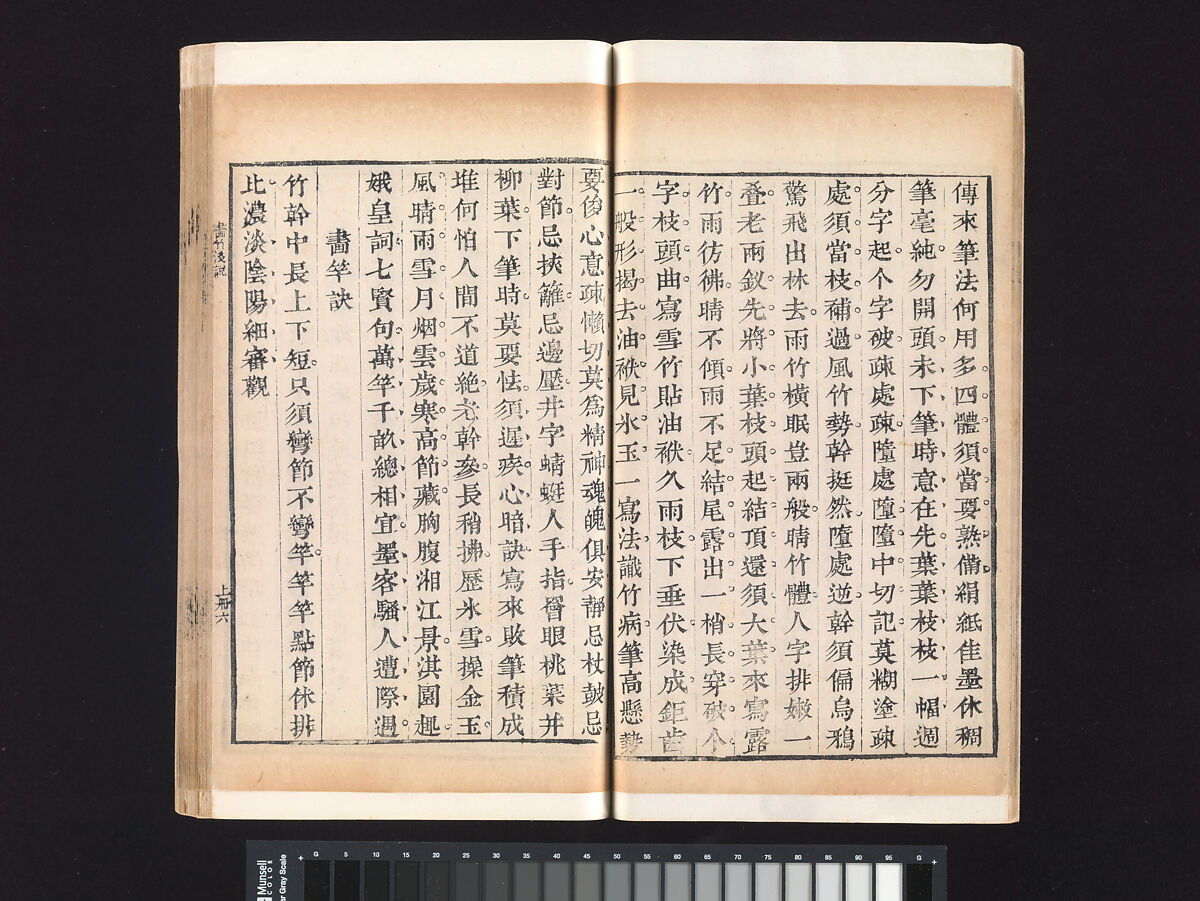 傳來筆法何用多四體須當要熟備絹紙佳墨休稠
筆毫純勿開頭未下筆時意在先葉葉枝枝一幅週
分字起个字破疎處疎墮處墮墮中切記莫糊塗疎
處須當枝補過風竹勢幹挺然墮處逆幹須偏烏鴉
驚飛出林去雨竹橫眠豈兩般晴竹體人字排嫩一
叠老兩釵先將小葉枝頭起結頂還須大葉來寫露
竹雨彷彿晴不傾雨不足結尾露出一梢長穿破个
字枝頭曲寫雪竹貼油袱久雨枝下垂伏染成鉅齒
一般形揭去油袱見氷玉一寫法識竹病筆高懸勢
要俊心意疎懶切莫為精神魂魄俱安靜忌杖鼓忌
對節忌挾籬忌邊壓井字蜻蜓人手指罾眼桃葉并
柳葉下筆時莫要怯須遲疾心暗訣寫來敗筆積成
堆何怕人間不道絶老幹參長稍拂歷氷雪操金玉
風晴雨雪月烟雲歲寒高節藏胸腹湘江景淇園趣
娥皇詞七賢句萬竿千畝總相宜墨客騷人遭際遇
畫竿訣
竹幹中長上下短只須彎節不彎竿竿竿點節休排
比濃淡陰陽細審觀
畫竹淺說
上冊 六
G 5 10 15 20 25 30 35 40 45 50 55 60 65 70 75 80 85 90 95 G
Munsell
COLOR
Gray Scale